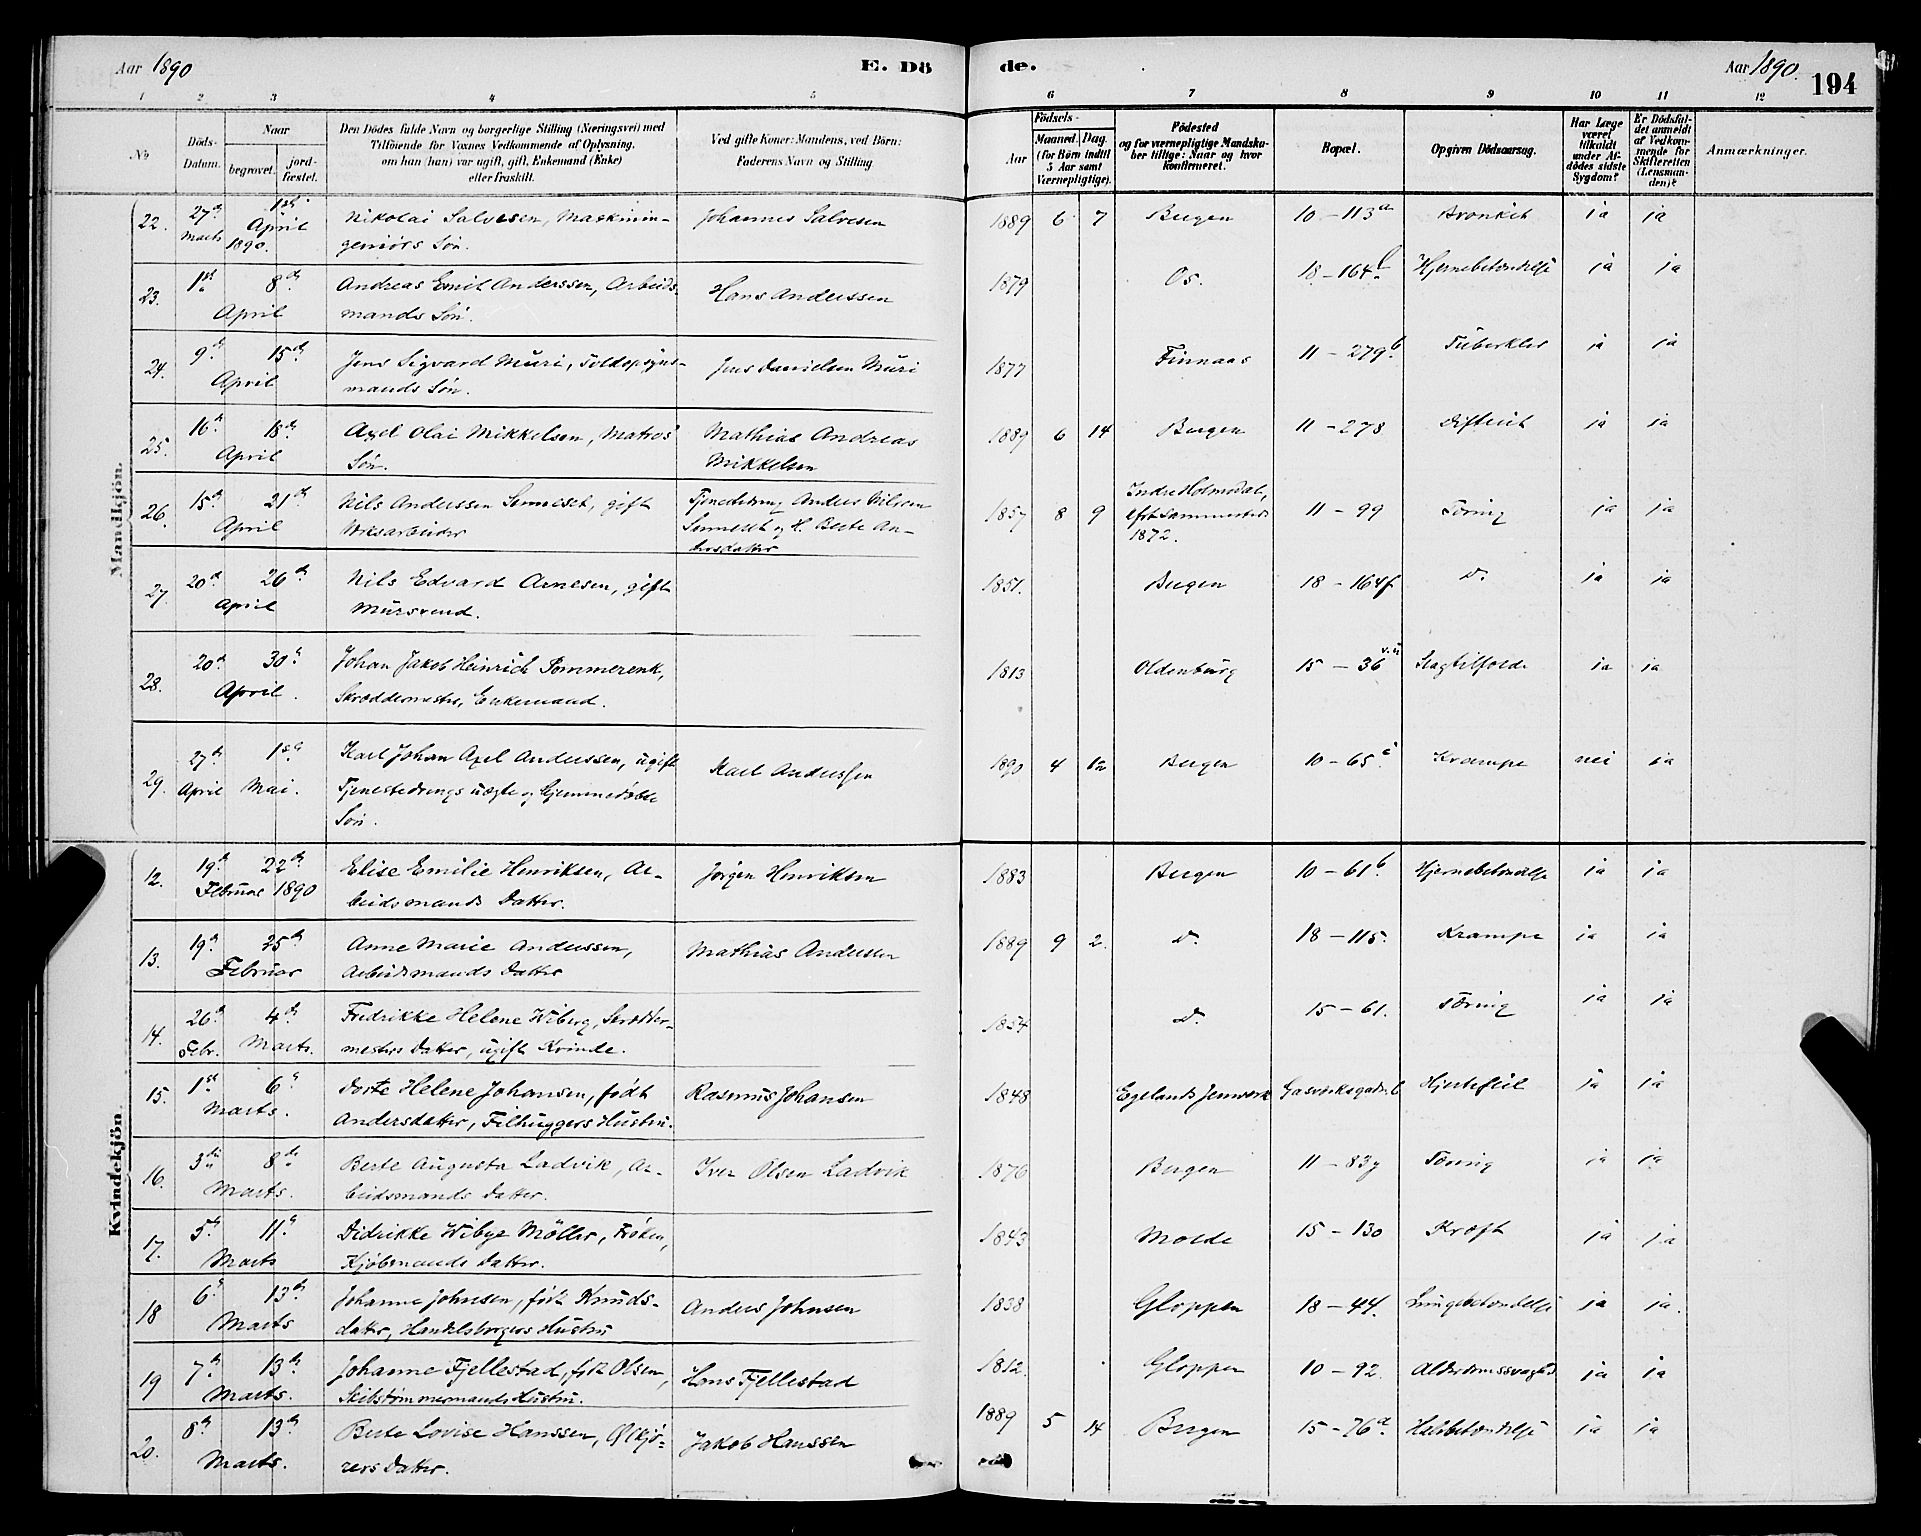 Aar 1890
E. Dö
de.
Aar 1890.
194
1 2 3 4 5 6 7 8 9 10 11 12
No
Döds-Datum.
Naar
begrovet.
jord-fæstet.
Den Dödes fulde Navn og borgerlige Stilling (Næringsvei) med
Tilföiende for Voxnes Vedkommende af Oplysning,
om han (hun) var ugift, gift, Enkemand (Enke)
eller fraskilt.
Ved gifte Koner: Mandens, ved Börn:
Faderens Navn og Stilling
Födsels-
Aar
Maaned. Dag.
(for Börn indtil
5 Aar samt
Værnepligtige).
Födested
og for værnepligtige Mandska-
ber tillige: Naar og hvor
konfirmeret.
Bopæl.
Opgiven Dödsaarsag.
Har Læge
været
tilkaldt
under Af-
dödes sidste
Sygdom?
Er Dödsfal-
det anmeldt
af Vedkom-
mende for
Skifteretten
(Lensman-
den)?
Anmærkninger.
Mandkjön.
22. 27de Marts 1ste April 1890. Nikolai Salvesen, Maskinin-
geniørs Søn. Johannes Salvesen 1889 6 7 Bergen 10 - 113a Bronkit ja ja
23. 1st 8de April Andreas Emil Anderssen, Arbeids-
mands Søn. Hans Anderssen 1879 Os. 18 - 164 Hjernebetændelse ja ja
24. 9de 15de April Jens Sigvard Muri, Toldopsyns-
mands Søn. Jens Danielsen Muri 1877 Finnaas 11 - 279b. Tuberkler ja ja
25. 16de 18de April Axel Olai Mikkelsen, Matros
Søn. Mathias Andreas
Mikkelsen 1889 6 14 Bergen 11 - 278 Difterit ja ja
26. 15de 21de April Nils Anderssen Senneset, gift
Verksarbeider Tjenestedreng Anders Nilssen
Senneset og H. Berte An-
dersdatter 1857 8 9 Indre Holmedal,
1872. 11 - 99 Tæring ja ja
27. 20de 26de April Nils Edvard Arnesen, gift
Mursvend. 1851. Bergen 18 - 164f D. ja ja
28. 20de 30te April. Johan Jakob Heinrich Pommerenk,
Skræddermester, Enkemand. 1813 Oldenburg 15 - 36 Slagtilfælde ja ja
29. 27de April 1ste Mai. Karl Johan Axel Anderssen, ugift
Tjenestedrengs uægte og hjemmedøbte
Søn. Karl Anderssen 1890 4 12 Bergen 10 - 65c Krampe nei ja
Kvindekjön
12. 19de 22de Februar 1890 Elise Emilie Henriksen, Ar-
beidsmands Datter. Jørgen Henriksen 1883 Bergen 10 - 61b. Hjernebetændelse ja ja
13. 19de 25de Februar Anne Marie Anderssen,
Arbeidsmands Datter Mathias Andersen 1889 9 2. D. 18 - 115. Krampe ja ja
14. 26de Febr. 4de Marts. Fredrikke Helene Wiberg, Skrædder-
mesters Datter, ugift Kvinde. 1854 D. 15 - 61. Tæring ja ja
15. 1st 6te Marts. Dorte Helene Johansen, født
Andersdatter, Filhuggers Hustru. Rasmus Johansen 1848 Egelands Jernverk Gasverksgaden 6 Hjertefeil ja ja
16. 3die 8de Marts. Berte Augusta Ladvik, Ar-
beidsmands Datter. Iver Olsen Ladvik 1876 Bergen 11 - 83y Tæring ja ja
17. 5te 11te Marts Didrikke Wibye Møller, Frøken,
Kjøbmands Datter. 1843 Molde 15 - 130 Kræft ja ja
18 6te 13de Marts Johanne Johnsen, født Knuds-
datter, Handelsborgers Hustru Anders Johnsen 1838 Gloppen 18 - 44. Lungebetændelse ja ja.
19 7de 13de Marts. Johanne Fjellestad, født Olsen,
Skibstømmermands Hustru. Hans Fjellestad 1812. Gloppen 10 - 92. Alderdomssvaghed ja ja
20. 8de 13de Marts. Berte Lovise Hanssen, Ølkjø-
rers Datter. Jakob Hanssen 1889 5 14 Bergen 15 - 76a. Halsbetændelse ja ja